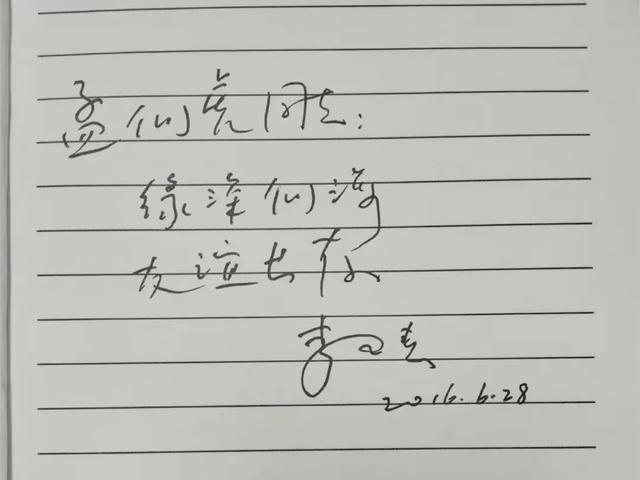 孟仙虎同志:
缘深似海
友谊长存
2016.6.28